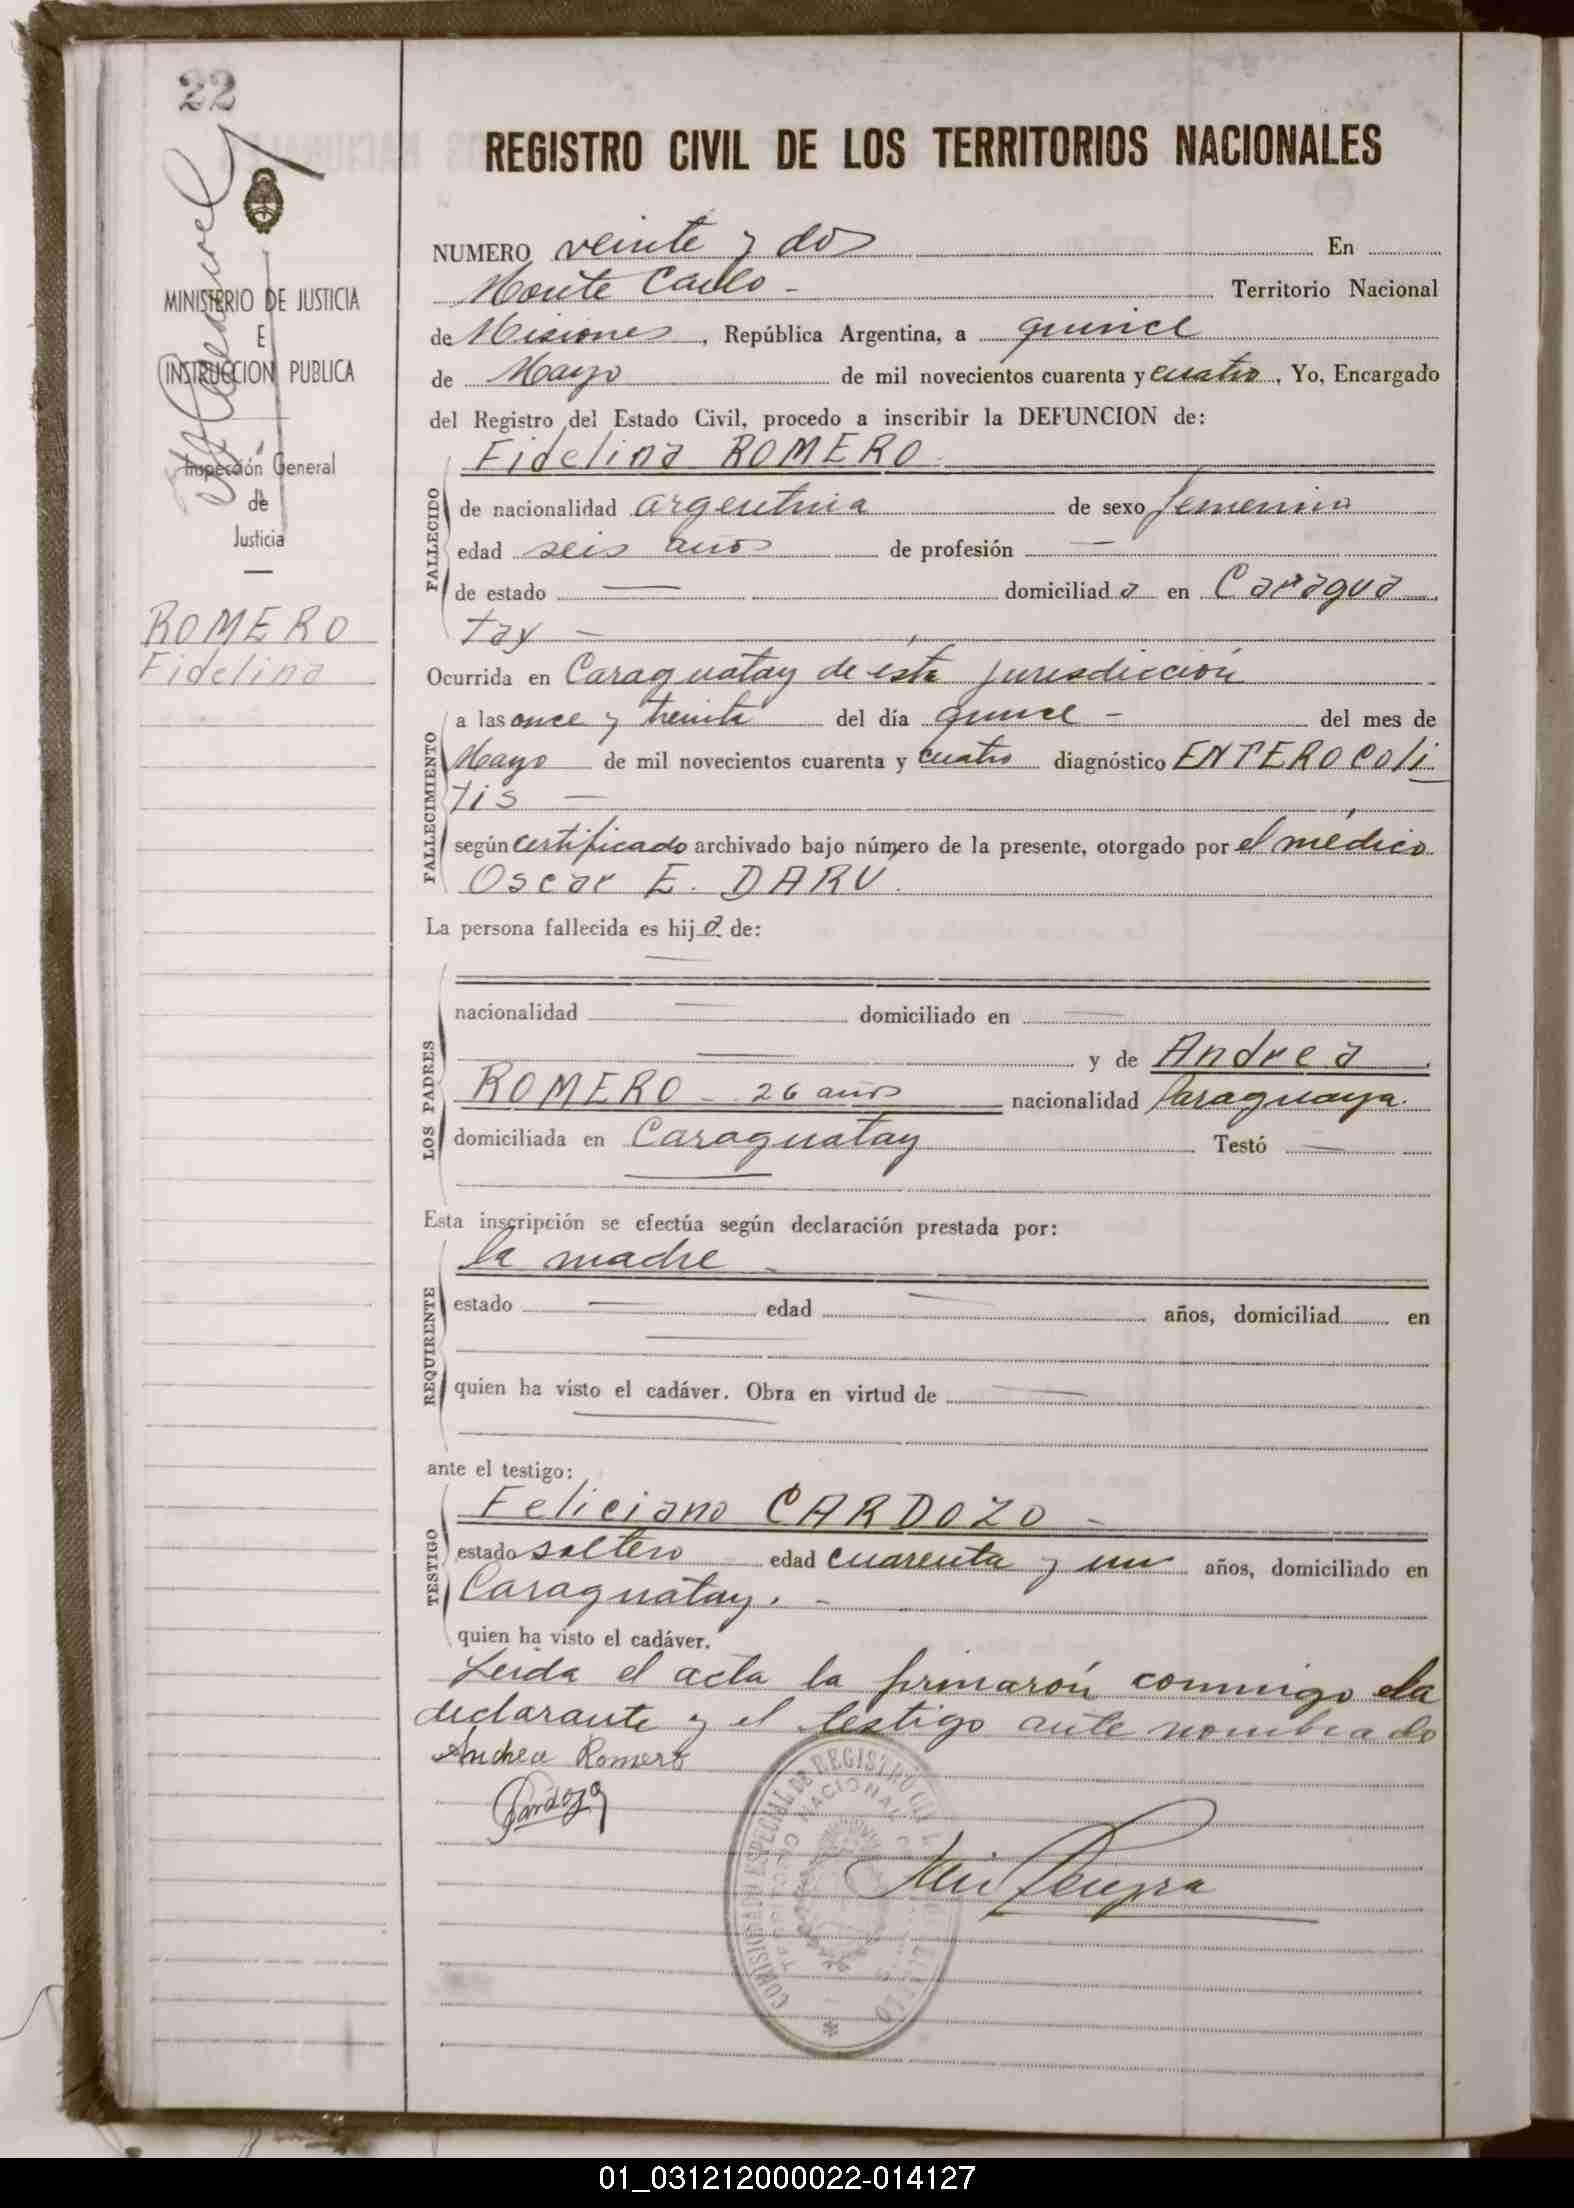 22
REGISTRO CIVIL DE LOS TERRITORIOS NACIONALES
MINISTERIO DE JUSTICIA
E
INSTRUCCION PUBLICA
Inspección General
de
Justicia
ROMERO
Fidelina
NUMERO veinte y dos En
Monte Carlo - Territorio Nacional
de Misiones, República Argentina, a quince
de Mayo de mil novecientos cuarenta y cuatro, Yo, Encargado
del Registro del Estado Civil, procedo a inscribir la DEFUNCION de:
Fidelina ROMERO
FALLECIDO
de nacionalidad argentina de sexo femenino
edad seis años de profesión —
de estado — domiciliada en Caragua
tay —
Ocurrida en Caraguatay de ésta jurisdicción
FALLECIMIENTO
a las once y treinta del día quince - del mes de
Mayo de mil novecientos cuarenta y cuatro diagnóstico ENTEROCOLI
tis —
según certificado archivado bajo número de la presente, otorgado por el médico
Oscar E. DARU.
La persona fallecida es hija de:
—
LOS PADRES
nacionalidad — domiciliado en —
— y de Andrea
ROMERO - 26 años nacionalidad Paraguaya.
domiciliada en Caraguatay Testó —
—
Esta inscripción se efectúa según declaración prestada por:
la madre -
REQUIRENTE
estado — edad — años, domiciliad en
—
quien ha visto el cadáver. Obra en virtud de —
—
ante el testigo:
Feliciano CARDOZO -
TESTIGO
estado soltero edad cuarenta y un años, domiciliado en
Caraguatay. -
quien ha visto el cadáver.
Leida el acta la firmarón conmigo ela
declarante y el testigo ante nombrado
Andrea Romero
Cardozo
COMISIONADO ESPECIAL DE REGISTRO CIVIL
01_031212000022-014127